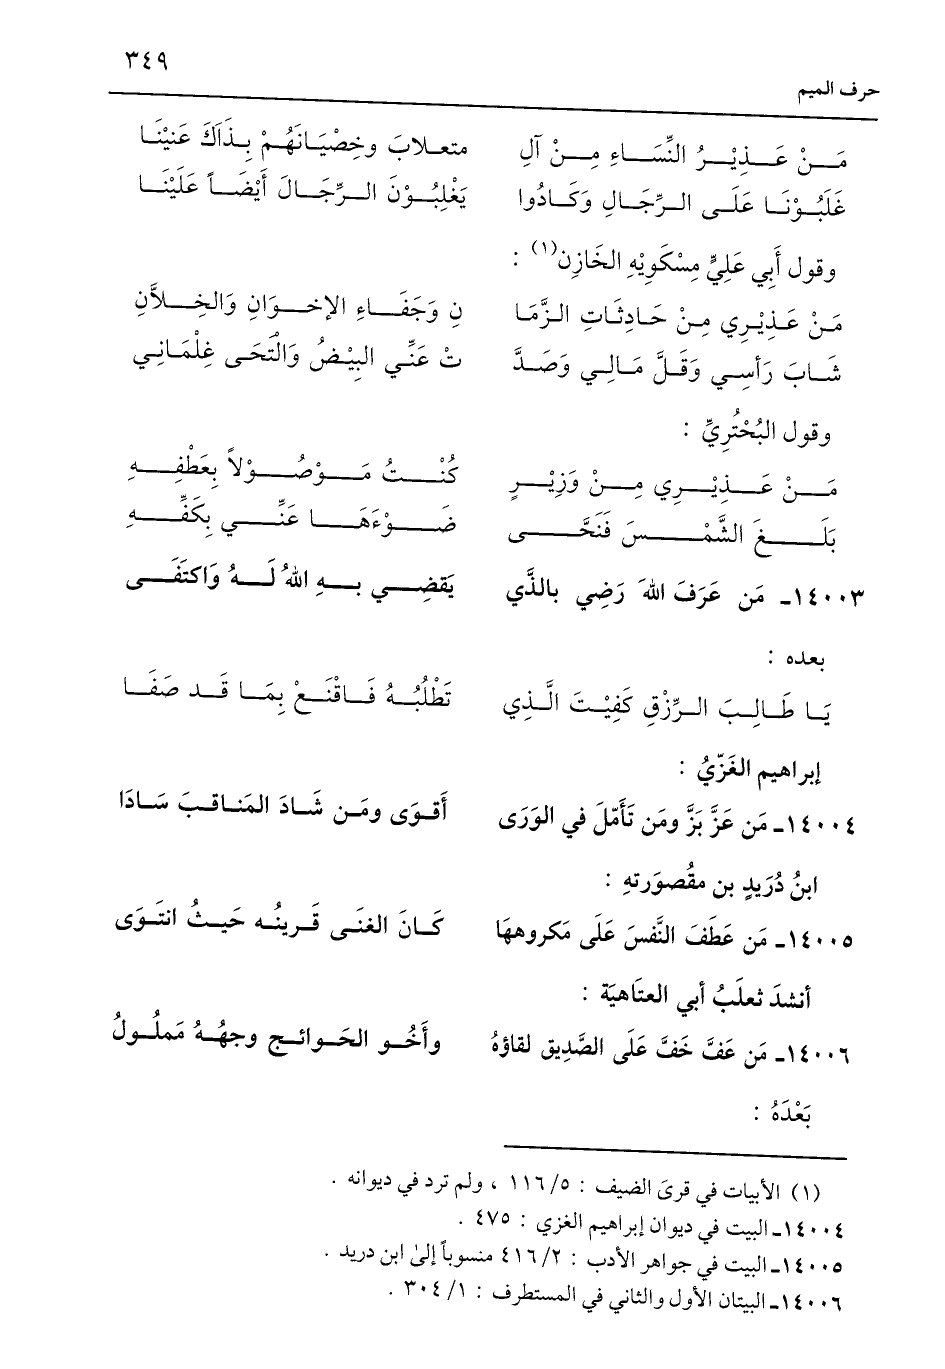 ٣٤٩
حرف الميم
مَنْ عَذِيْرُ النِّسَاءِ مِنْ آلِ متعلابَ وخِصْيَانَهُمْ بِذَاكَ عَنيْنَا
غَلَبُوْنَا عَلَى الرِّجَالِ وَكَادُوا يَغْلِبُوْنَ الرِّجَالَ أَيْضَاً عَلَيْنَا
وقول أَبِي عَلِيٍّ مِسْكَوِيْهِ الخَازِن(١) :
مَنْ عَذِيْرِي مِنْ حَادِثَاتِ الزَّمَا نِ وَجَفَاءِ الإخوَانِ وَالخِلاَّنِ
شَابَ رَأسِي وَقَلَّ مَالِي وَصَدَّ تْ عَنِّي البِيْضُ وَالْتَحَى غِلْمَانِي
وقول البُحْتُرِيِّ :
مَنْ عَذِيْرِي مِنْ وَزِيْرٍ كُنْتُ مَوْصُوْلاً بِعَطْفِهِ
بَلَغَ الشَّمْسَ فَنَحَّى ضَوْءَهَا عَنِّي بِكَفِّهِ
١٤٠٠٣ـ مَن عَرَفَ اللهَ رَضِي بالذَّي يَقضِي بهِ اللهُ لَهُ وَاكتَفَى
بعده :
يَا طَالِبَ الرِّزْقِ كَفِيْتَ الَّذِي تَطْلُبُهُ فَاقْنَعْ بِمَا قَد صَفَا
إبراهيم الغَزّيُ :
١٤٠٠٤ـ مَن عَزَّ بَزَّ ومَن تَأَمّلَ في الوَرَى أَقوَى ومَن شَادَ المَناقبَ سَادَا
ابنُ دُرَيدٍ بن مقصُورَتهِ :
١٤٠٠٥ـ مَن عَطَفَ النَّفسَ عَلَى مَكروههَا كَانَ الغنَى قَرينُه حَيثُ انتَوَى
أنشدَ ثعلَبُ أبي العتَاهيَة :
١٤٠٠٦ـ مَن عَفَّ خَفَّ عَلَى الصَّدِيق لقاؤهُ وأَخُو الحَوائج وجهُهُ مَملُولُ
بَعْدَهُ :
(١) الأبيات في قرى الضيف : ٥/ ١١٦ ، ولم ترد في ديوانه .
١٤٠٠٤ـ البيت في ديوان إبراهيم الغزي : ٤٧٥ .
١٤٠٠٥ـ البيت في جواهر الأدب : ٢/ ٤١٦ منسوباً إلىٰ ابن دريد .
١٤٠٠٦ـ البيتان الأول والثاني في المستطرف : ١/ ٣٠٤ .